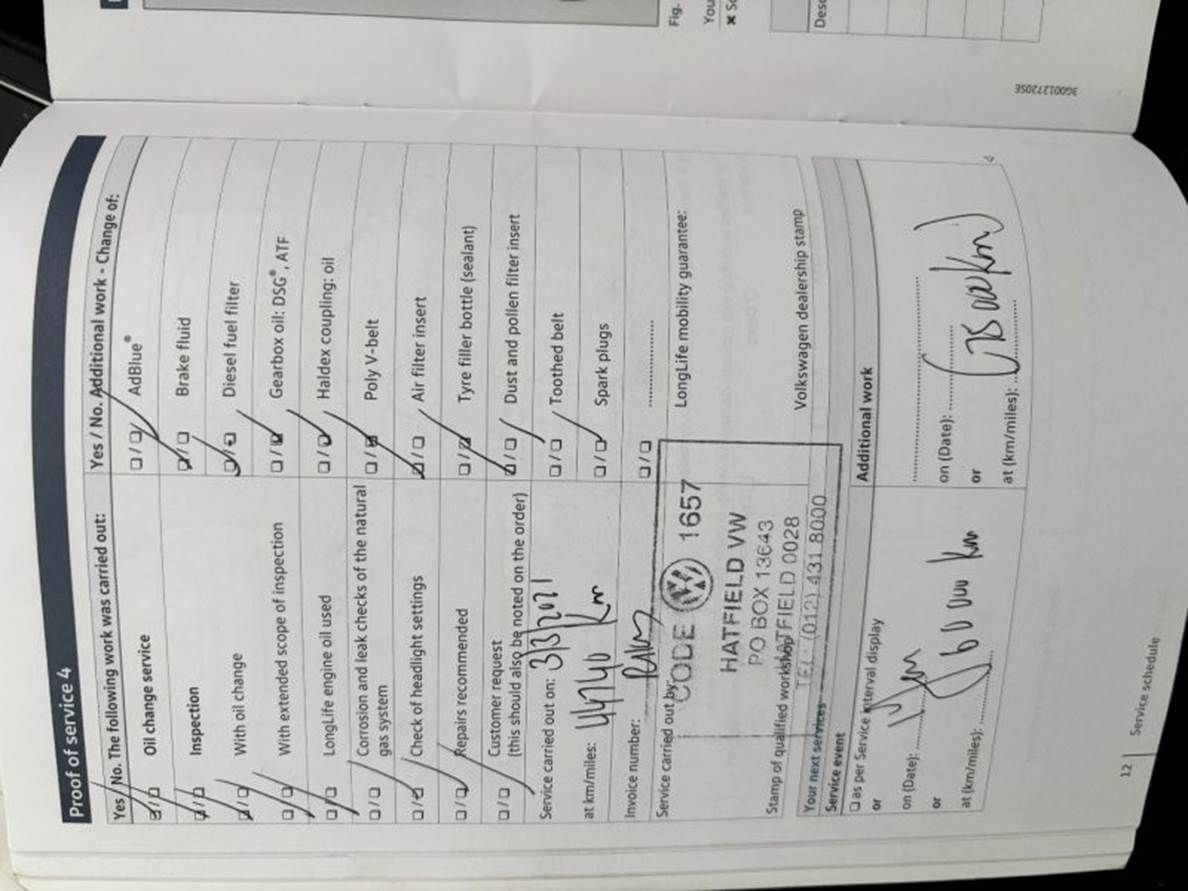 Proof of service 4
Yes / No. The following work was carried out:
Oil change service
Inspection
With oil change
With extended scope of inspection
LongLife engine oil used
Corrosion and leak checks of the natural
gas system
Check of headlight settings
Repairs recommended
Customer request
(this should also be noted on the order)
Service carried out on: 3/3/2021
at km/miles: 44740 km
Invoice number:
Service carried out by:
CODE 1657
HATFIELD VW
PO BOX 13643
HATFIELD 0028
TEL: (012) 431 8000
Stamp of qualified workshop
Yes / No. Additional work - Change of:
AdBlue®
Brake fluid
Diesel fuel filter
Gearbox oil: DSG®, ATF
Haldex coupling: oil
Poly V-belt
Air filter insert
Tyre filler bottle (sealant)
Dust and pollen filter insert
Toothed belt
Spark plugs
LongLife mobility guarantee:
Volkswagen dealership stamp
Your next services
Service event
as per Service interval display
or
on (Date):
or
at (km/miles): 60 000 km
Additional work
on (Date):
or
at (km/miles): (75 000 km)
12 Service schedule
3G0012720SE
Fig.
You
Desc